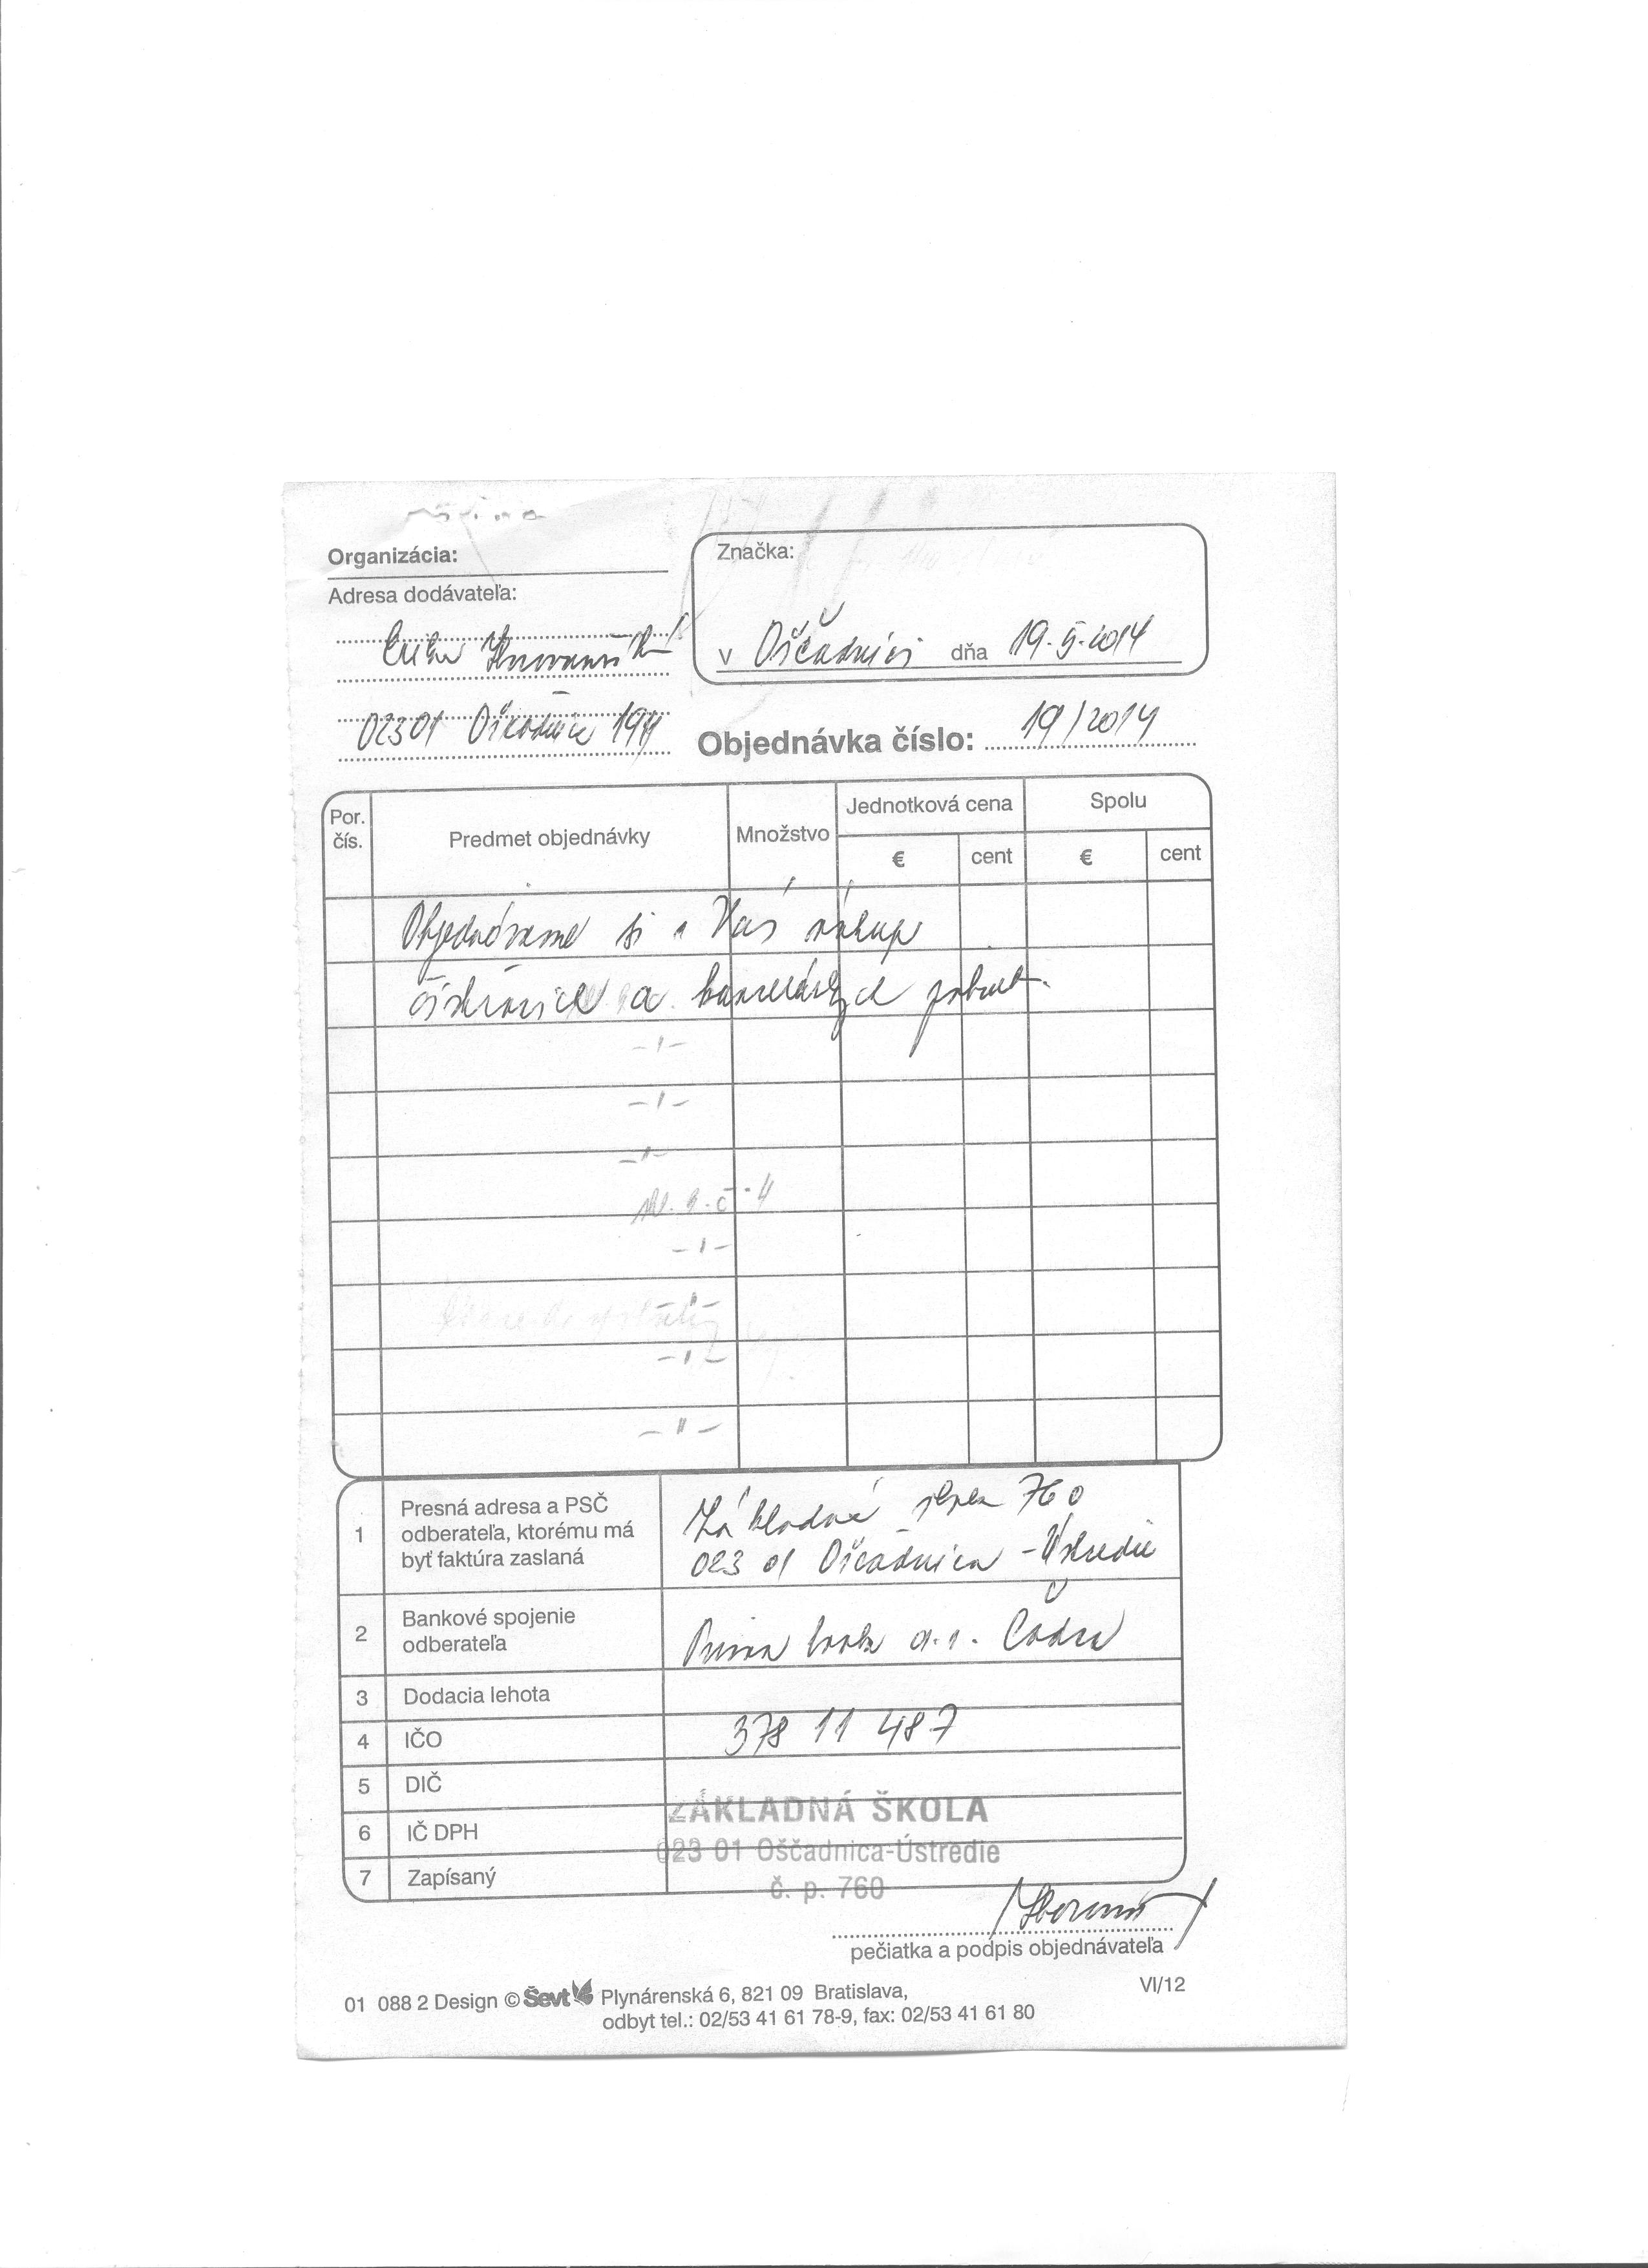 Organizácia:
Značka:
Adresa dodávateľa:
v Oščadnici dňa 19.5.2014
02301 Oščadnica
Objednávka číslo: 19/2014
Por. čís.
Predmet objednávky
Množstvo
Jednotková cena
Spolu
€ cent € cent
Objednávame si u Vás nákup
čistiacich a kancelárskych potrieb.
1 Presná adresa a PSČ
odberateľa, ktorému má
byť faktúra zaslaná
Základná škola 760
023 01 Oščadnica - Ústredie
2 Bankové spojenie
odberateľa
Prima banka a.s. Čadca
3 Dodacia lehota
4 IČO 378 11 487
5 DIČ
6 IČ DPH
7 Zapísaný
ZÁKLADNÁ ŠKOLA
023 01 Oščadnica-Ústredie
č. p. 760
pečiatka a podpis objednávateľa
01 088 2 Design © Ševt Plynárenská 6, 821 09 Bratislava,
odbyt tel.: 02/53 41 61 78-9, fax: 02/53 41 61 80
VI/12